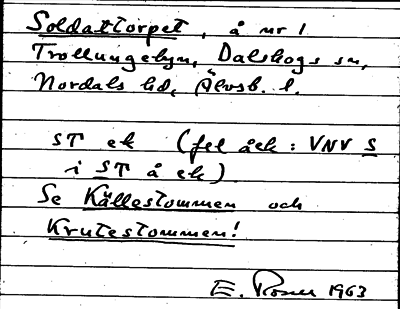 Soldattorpet, å nr 1
Trollungebyn, Dalskogs sn,
Nordals hd, Älvsb. l.
ST ek (fel åek: VNV S
i ST å ek)
Se Källestommen och
Krutestommen!
E. Rosen 1963